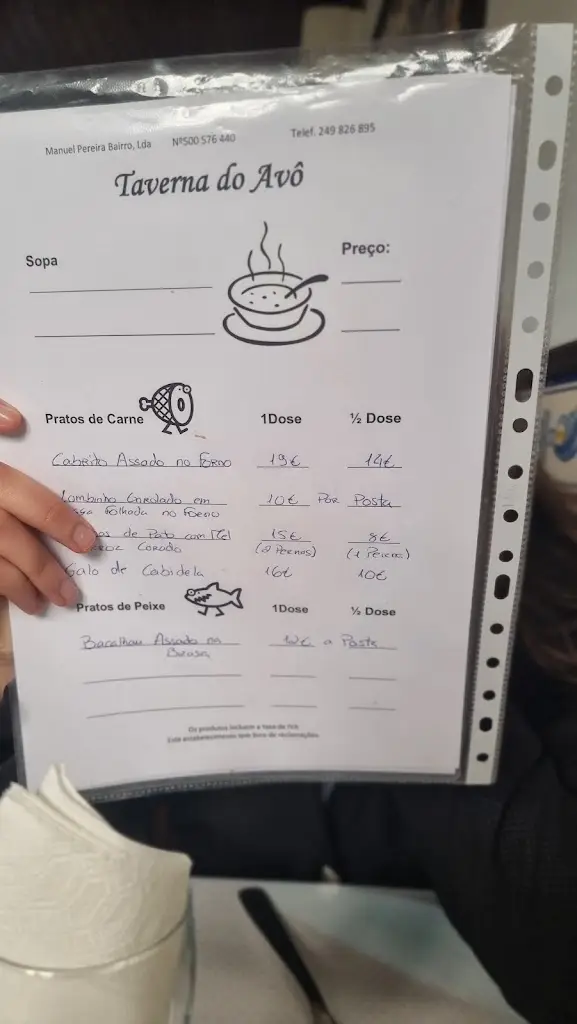 Manuel Pereira Bairro, Lda Nº500 576 440 Telef. 249 826 895
Taverna do Avô
Sopa Preço:
Pratos de Carne 1Dose ½ Dose
Cabrito Assado no Forno 19€ 14€
Lombinho Enrolado em 10€ Por Posta
Folhada no Forno
de Pato com Mel 15€ 8€
Corado (2 Pernas) (1 Perna)
Galo de Cabidela 16€ 10€
Pratos de Peixe 1Dose ½ Dose
Bacalhau Assado na a Posta
Brasa
Os produtos incluem a taxa de IVA
Este estabelecimento tem livro de reclamações